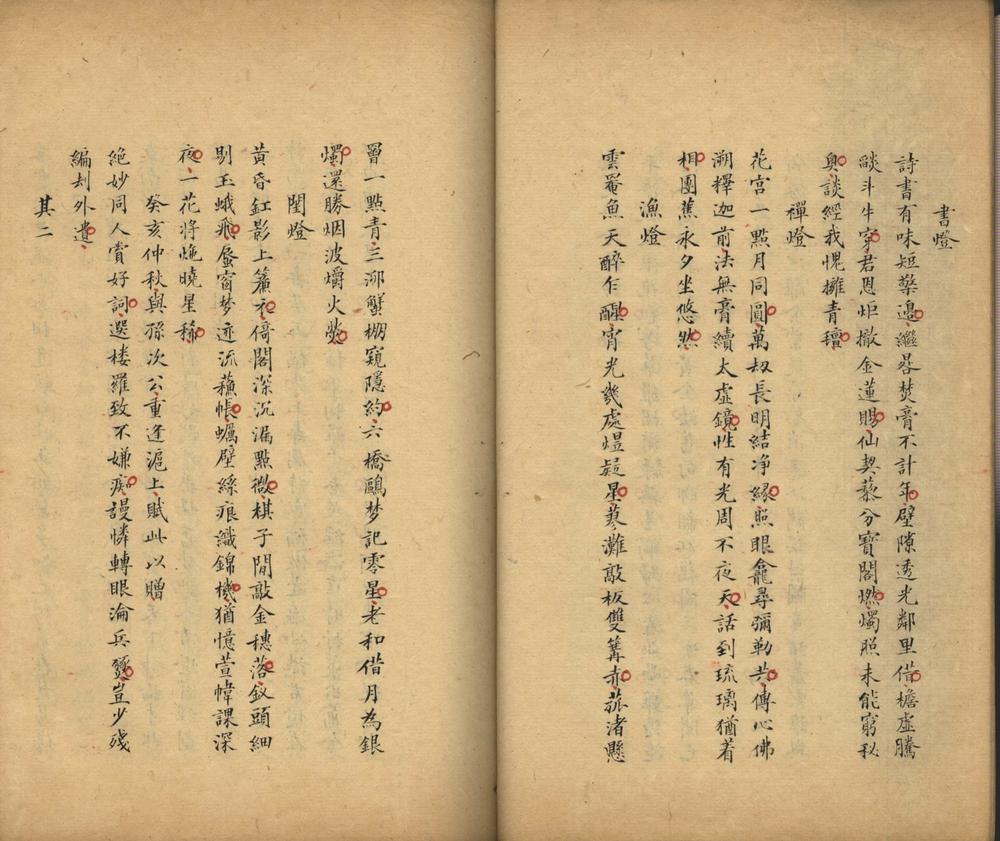 書燈
詩書有味短檠邊繼晷焚膏不計年壁隙透光鄰里借檐虛騰
燄斗牛穿君恩炬撤金蓮賜仙契藜分寶閣燃燭照未能窮秘
奧談經我愧擁青氊
禪燈
花宮一點月同圓萬劫長明結净緣照眼龕尋彌勒共傳心佛
溯釋迦前法無膏續太虛鏡性有光周不夜天話到琉璃猶着
相團蕉永夕坐悠然
漁燈
雲罨魚天醉乍醒宵光幾處煜疑星蓼灘敲板雙篝赤菰渚懸
罾一點青三泖蟹棚窺隱約六橋鷗梦記零星老和借月為銀
燭還勝烟波爝火熒
閨燈
黄昏釭影上簾衣倚閣深沉漏點微棋子閒敲金穗落釵頭細
剔玉蛾飛蜃窗梦迹流蘇帳蠣壁絲痕織錦機猶憶萱幃課深
夜一花將灺曉星稀
癸亥仲秋與孫次公重逢滬上賦此以贈
絶妙同人賞好詞選楼羅致不嫌痴謾憐轉眼淪兵燹豈少殘
編刦外遺
其二